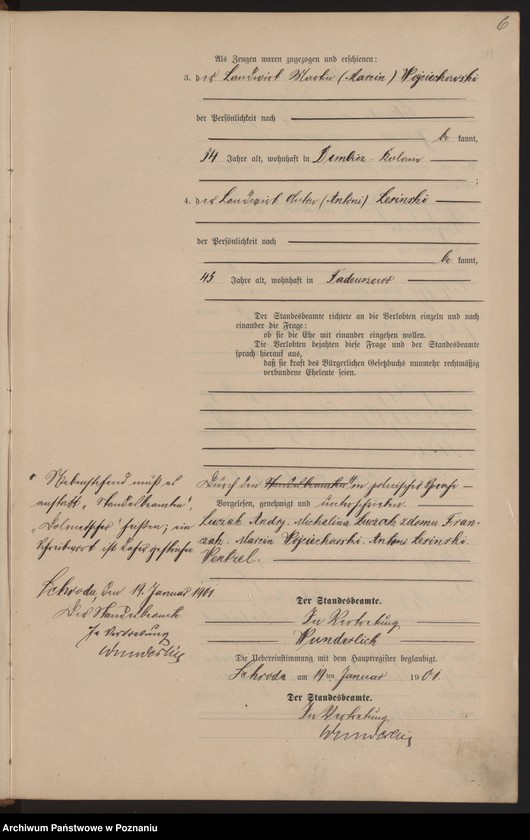 6
Als Zeugen waren zugezogen und erschienen:
3. der Landwirt Martin (Marcin) Wojciechowski
der Persönlichkeit nach
be kannt,
54 Jahre alt, wohnhaft in Dembicz-Kolonie
;
4. der Landwirt Anton (Antoni) Lesinski
der Persönlichkeit nach
be kannt,
45 Jahre alt, wohnhaft in Tadeuszewo
Der Standesbeamte richtete an die Verlobten einzeln und nach
einander die Frage:
ob sie die Ehe mit einander eingehen wollen.
Die Verlobten bejahten diese Frage und der Standesbeamte
sprach hierauf aus,
daß sie kraft des Bürgerlichen Gesetzbuchs nunmehr rechtmäßig
verbundene Eheleute seien.
Durch den Standesbeamten in polnischer Sprache
Vorgelesen, genehmigt und unterschrieben
Luzak Andrzej. Michalina Luzak z domu Fran-
zak. Marcin Wojciechowski. Antoni Lesinski
Wentzel.
Nebenstehend muß es
anstatt „Standesbeamten"
„Dolmetscher" heißen; ein
Schreibwort ist daher gestrichen
Schroda, den 19. Januar 1901
Der Standesbeamte
In Vertretung
Wunderlich
Der Standesbeamte.
In Vertretung
Wunderlich
Die Uebereinstimmung mit dem Hauptregister beglaubigt.
Schroda am 19ten Januar 1901.
Der Standesbeamte.
In Vertretung
Wunderlich
Archiwum Państwowe w Poznaniu